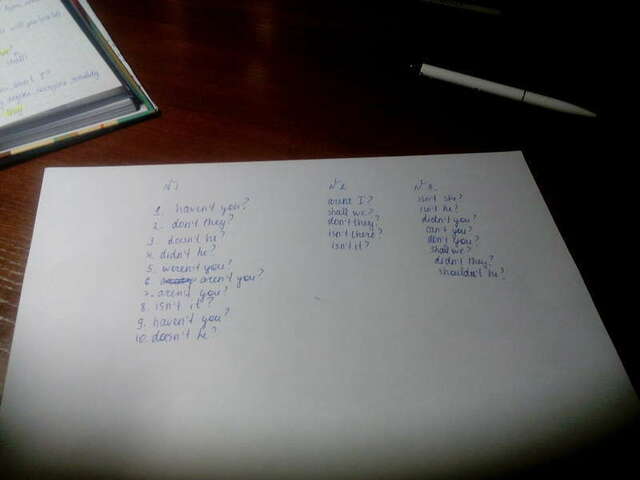 N1
1. haven't you?
2. don't they?
3. doesn't he?
4. didn't he?
5. weren't you?
6. aren't you?
7. aren't you?
8. isn't it?
9. haven't you?
10. doesn't he?
N2
arent I?
shall we?
don't they?
isn't there?
isn't it?
N3
isn't she?
isn't he?
didn't you?
can't you?
don't you?
shall we?
didn't they?
shouldn't he?